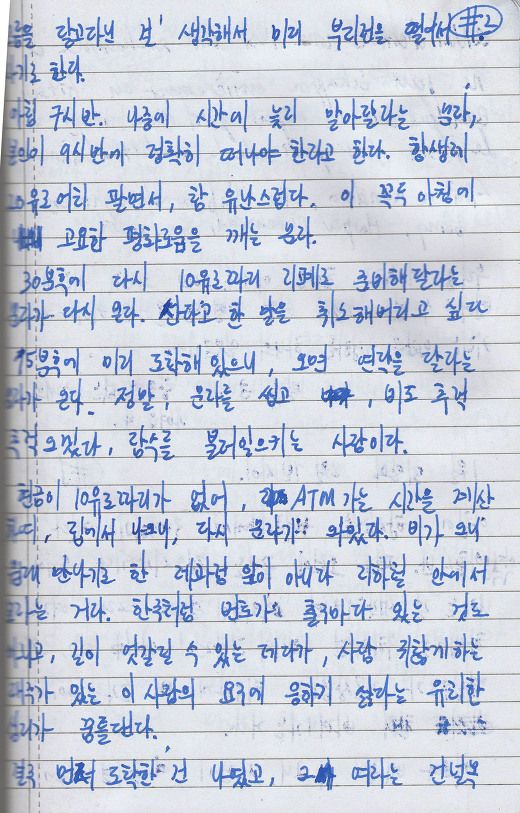 #2
담고다닌 걸 생각해서 미리 부리점을 떨어서
하기로 한다.
아침 7시반. 나중에 시간에 늦지 말아달라는 문자,
본인이 9시반에 정확히 떠나야 한다고 한다. 항생제
20유로어치 팔면서, 참 유난스럽다. 이 꼭두 아침에
고요한 평화로움을 깨는 문자.
30분후에 다시 10유로짜리 지폐로 준비해달라는
문자가 다시 온다. 산다고 한 말을 취소해버리고 싶다
15분후에 미리 도착해있으니, 오면 연락을 달라는
문자가 온다. 정말, 문자를 씹고 , 비도 추적
추적 오겠다, 잠수를 불러일으키는 사람이다.
현금이 10유로짜리가 없어, ATM 가는 시간을 계산
하며, 집에서 나오니, 다시 문자가 와있다. 비가 오니
원래 만나기로 한 레과럼 앞이 아니다 지하철 안에서
보자는 거다. 한국처럼 번호가 출구마다 있는 것도
아니고, 길이 엇갈릴 수 있는 데다가, 사람 귀찮게하는
재주가 있는 이 사람의 요구에 응하기 싫다는 유치한
심리가 꿈틀댄다.
결국 먼저 도착한 건 나였고, 그 여자는 건널목